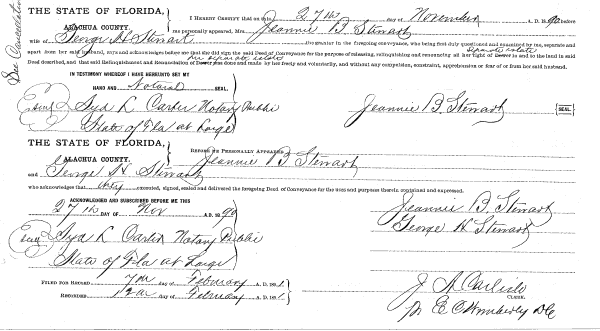 See Cancellation
THE STATE OF FLORIDA, I HEREBY CERTIFY that on this 27th day of November A. D. 1890 before
ALACHUA COUNTY. me personally appeared, Mrs. Jeannie B. Stewart
wife of George H. Stewart Dowerester in the foregoing conveyance, who being first duly questioned and examined by me, separate and
separate estate
apart from her said husband, says and acknowledges before me that she did sign the said Deed of Conveyance for the purpose of releasing, relinquishing and renouncing all her right of Dower in and to the land in said
her separate estate
Deed described, and that said Relinquishment and Renunciation of Dower was done and made by her freely and voluntarily, and without any compulsion, constraint, apprehension or fear of or from her said husband.
IN TESTIMONY WHEREOF I HAVE HEREUNTO SET MY
HAND AND Notarial SEAL.
Syd L. Carter Notary Public
Jeannie B. Stewart {SEAL}
State of Fla at Large
THE STATE OF FLORIDA, BEFORE ME PERSONALLY APPEARED Jeannie B Stewart
ALACHUA COUNTY.
and George H. Stewart
who acknowledges that they executed, signed, sealed and delivered the foregoing Deed of Conveyance for the uses and purposes therein contained and expressed.
ACKNOWLEDGED AND SUBSCRIBED BEFORE ME THIS
27th DAY OF Nov A. D. 1890
Jeannie B. Stewart
George H Stewart
Syd L Carter Notary Public
State of Fla at Large
FILED FOR RECORD 7th day of February A. D. 1891.
RECORDED 12th day of February A. D. 1891.
J A Carlisle
CLERK.